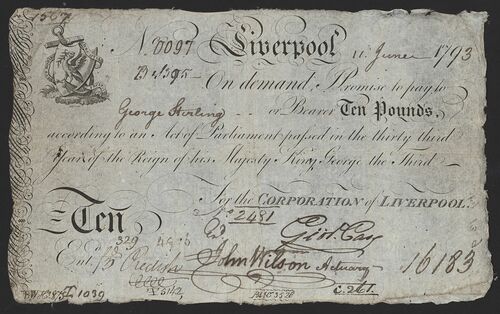 N. 8097 Liverpool 11. June 1793
On demand, I Promise to pay to
George Sterling or Bearer Ten Pounds,
according to an Act of Parliament passed in the thirty third
Year of the Reign of his Majesty King George the Third
For the CORPORATION of LIVERPOOL.
No 2481
Ten
329
Ent.d
John Wilson Actuary 16183
C.261
1039